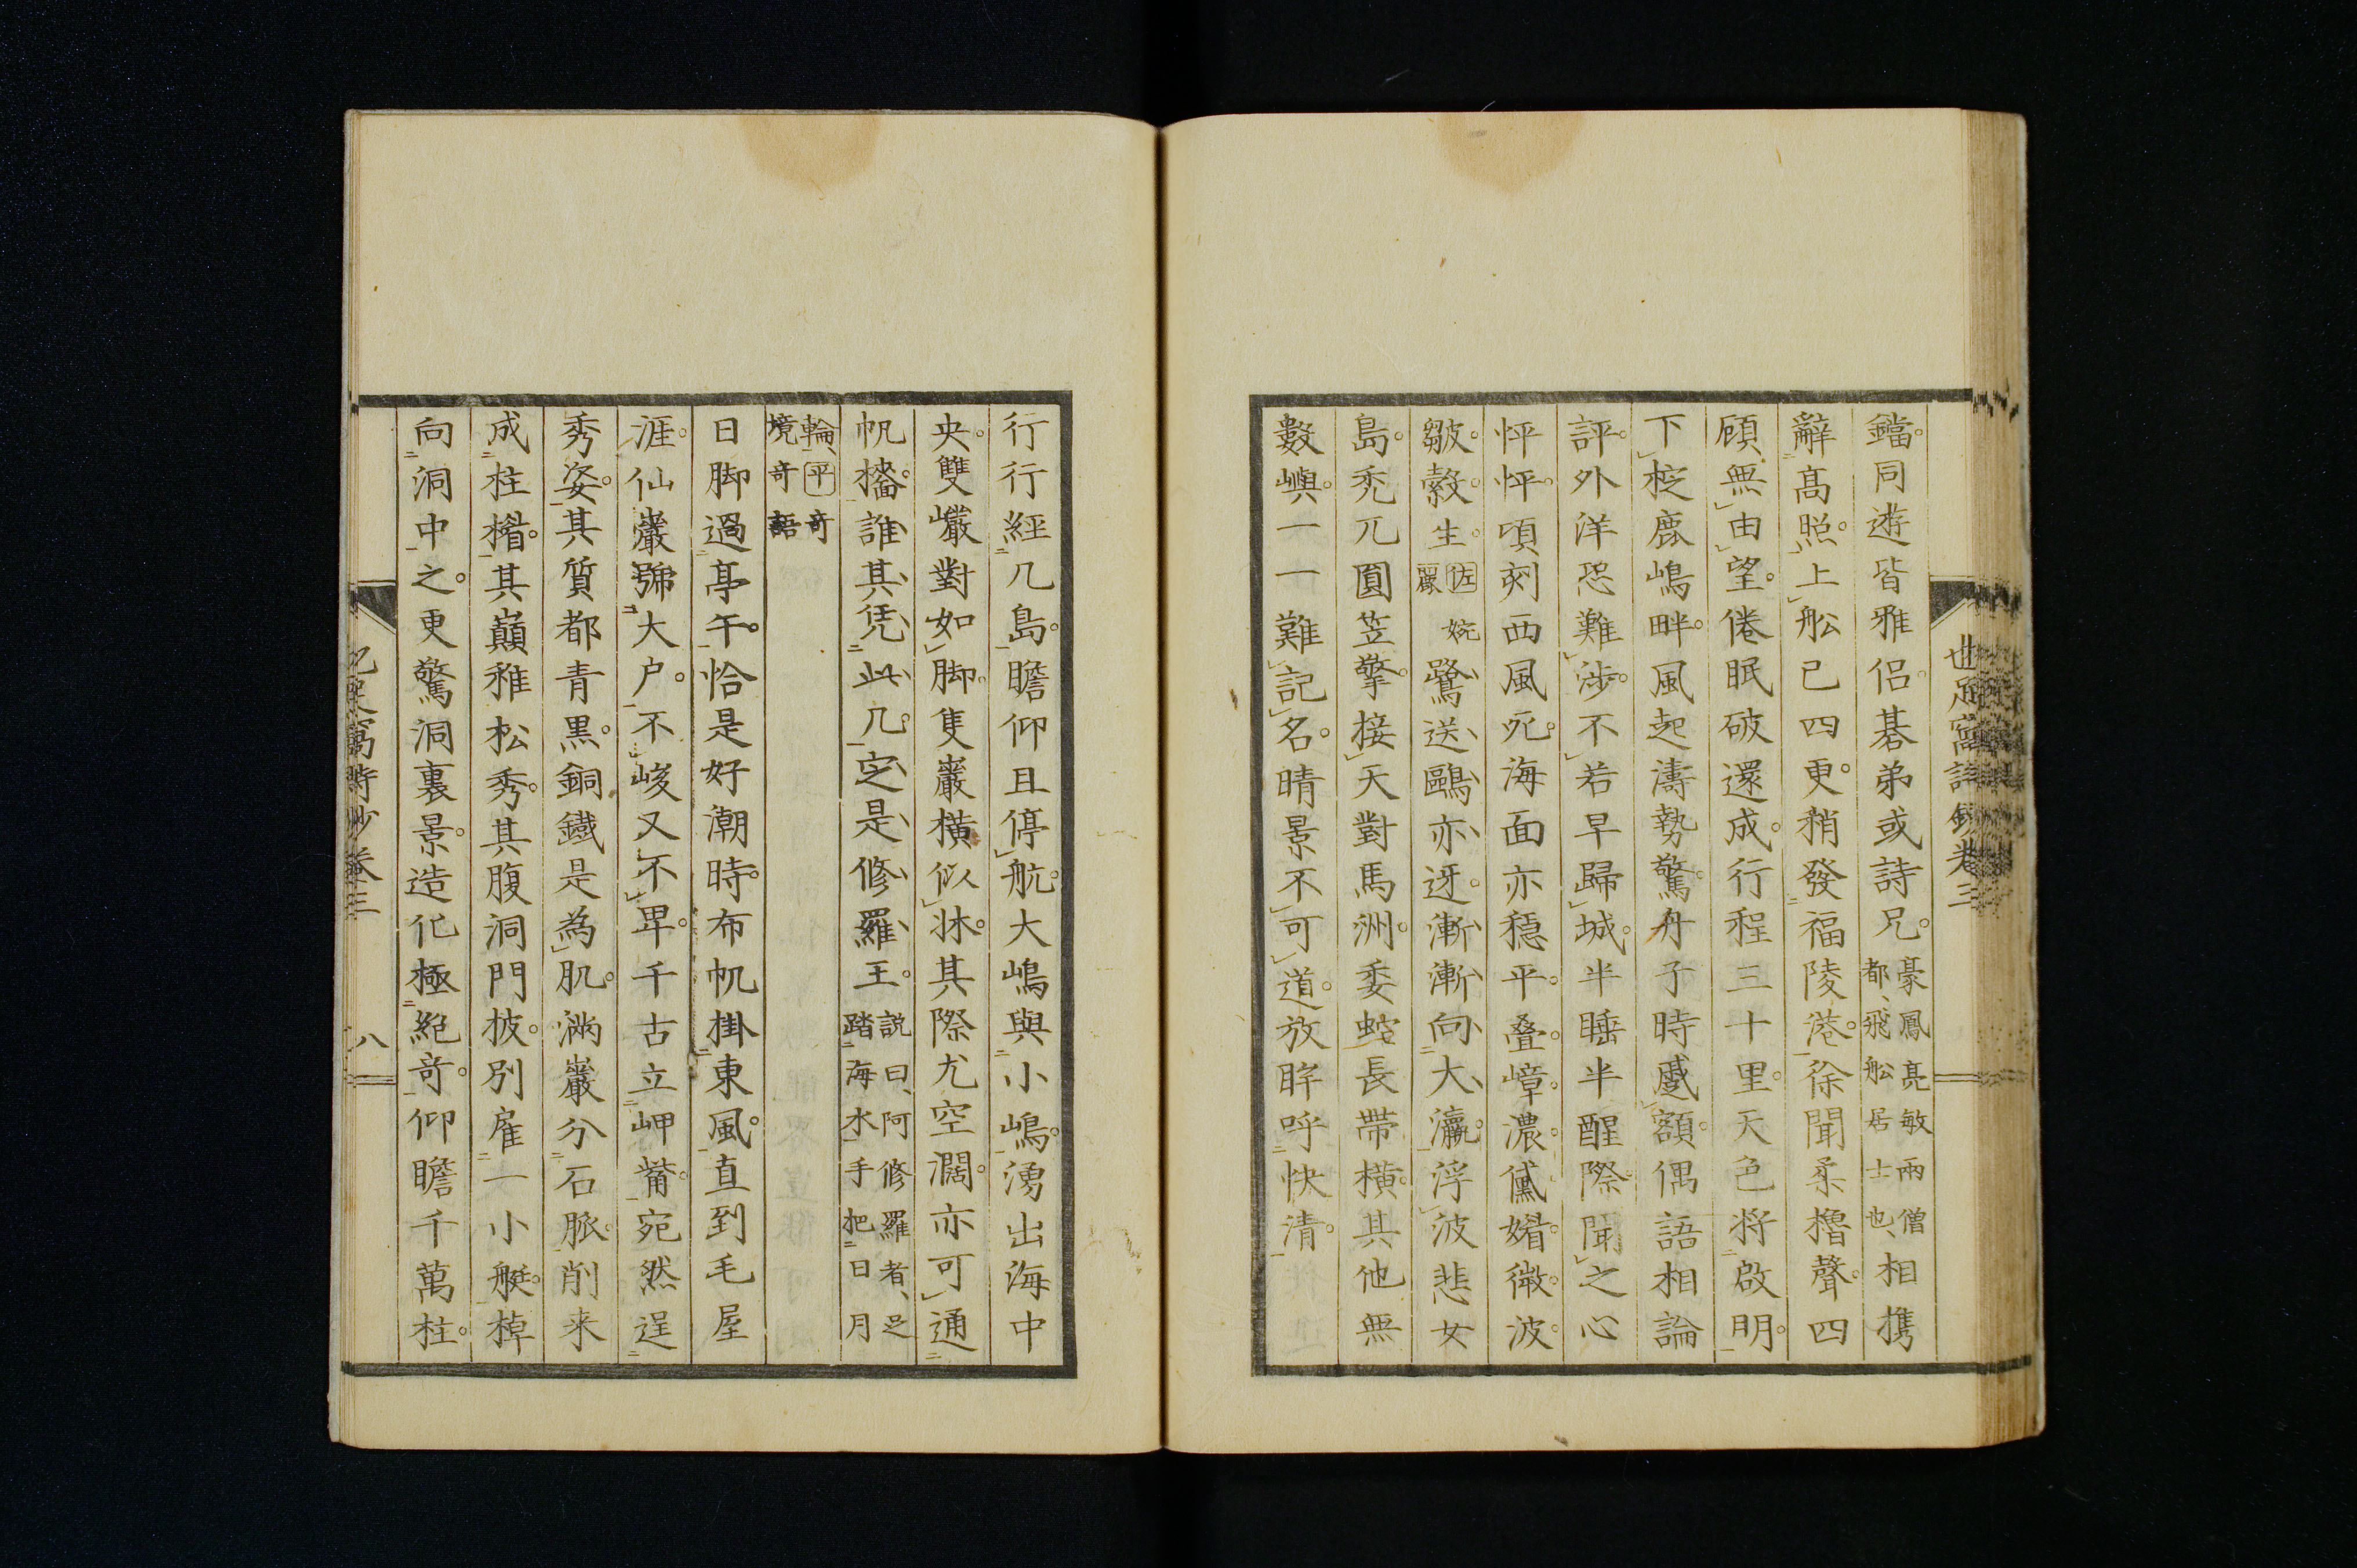 鐺同遊皆雅侶碁弟或詩兄豪鳳亮敏兩僧都、飛舩居士也、相携
辭髙照上舩已四更稍發福陵港徐聞柔櫓聲四
顧無由望倦眠破還成行程三十里天色将啟明
下椗鹿嶋畔風起濤勢驚舟子時蹙額偶語相論
評外洋恐難渉不若早歸城半睡半醒際聞之心
怦怦頃刻西風死海面亦穏平叠嶂濃黛媚微波
皺縠生佐婉麗鷺送鷗亦迓漸漸向大瀛浮波悲女
島禿兀圓笠擎接天對馬洲委蛇長帶横其他無
數嶼一一難記名晴景不可道放眸呼快清
世足窩詩鈔卷三
行行經几島瞻仰且停航大嶋與小嶋湧出海中
央雙巖對如脚隻巖横似牀其際尤空濶亦可通
帆檣誰其凭此几定是修羅王説曰、阿修羅者、足踏海水手把日月
輪、平奇境奇語
日脚過亭午恰是好潮時布帆掛東風直到毛屋
涯仙巖號大戸不峻又不卑千古立岬觜宛然逞
秀姿其質都青黒銅鐵是為肌滿巖分石脈削来
成柱㮇其巔稚松秀其腹洞門披別雇一小艇棹
向洞中之更驚洞裏景造化極絶奇仰瞻千萬柱
卷三
八